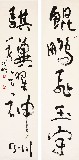 鯤鵬飛玉宇
騏驥躍神州